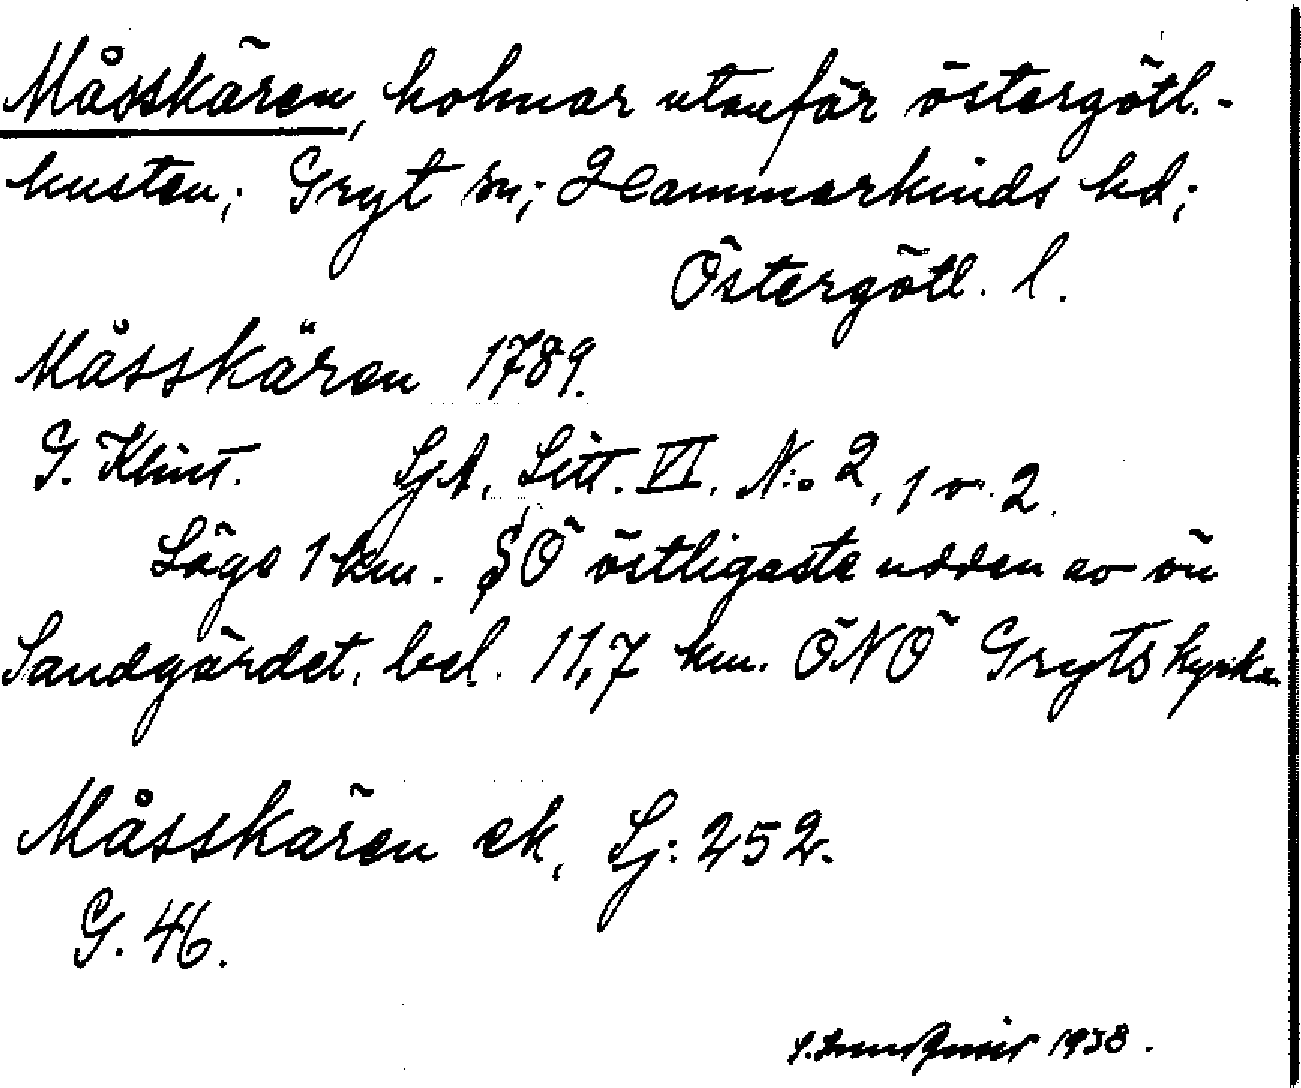 Måsskären, holmar utanför östergötl.-
kusten; Gryt sn; Hammarkinds hd;
Östergötl. l.
Måsskären 1789.
G. Klint. SjA, Litt. VI. N:o 2, 1 o. 2.
Läge 1 km. SÖ östligaste udden av ön
Sandgärdet, bel. 11,7 km. ÖNÖ Gryts kyrka
Måsskären ek, Sj: 252.
G. 46.
1938.